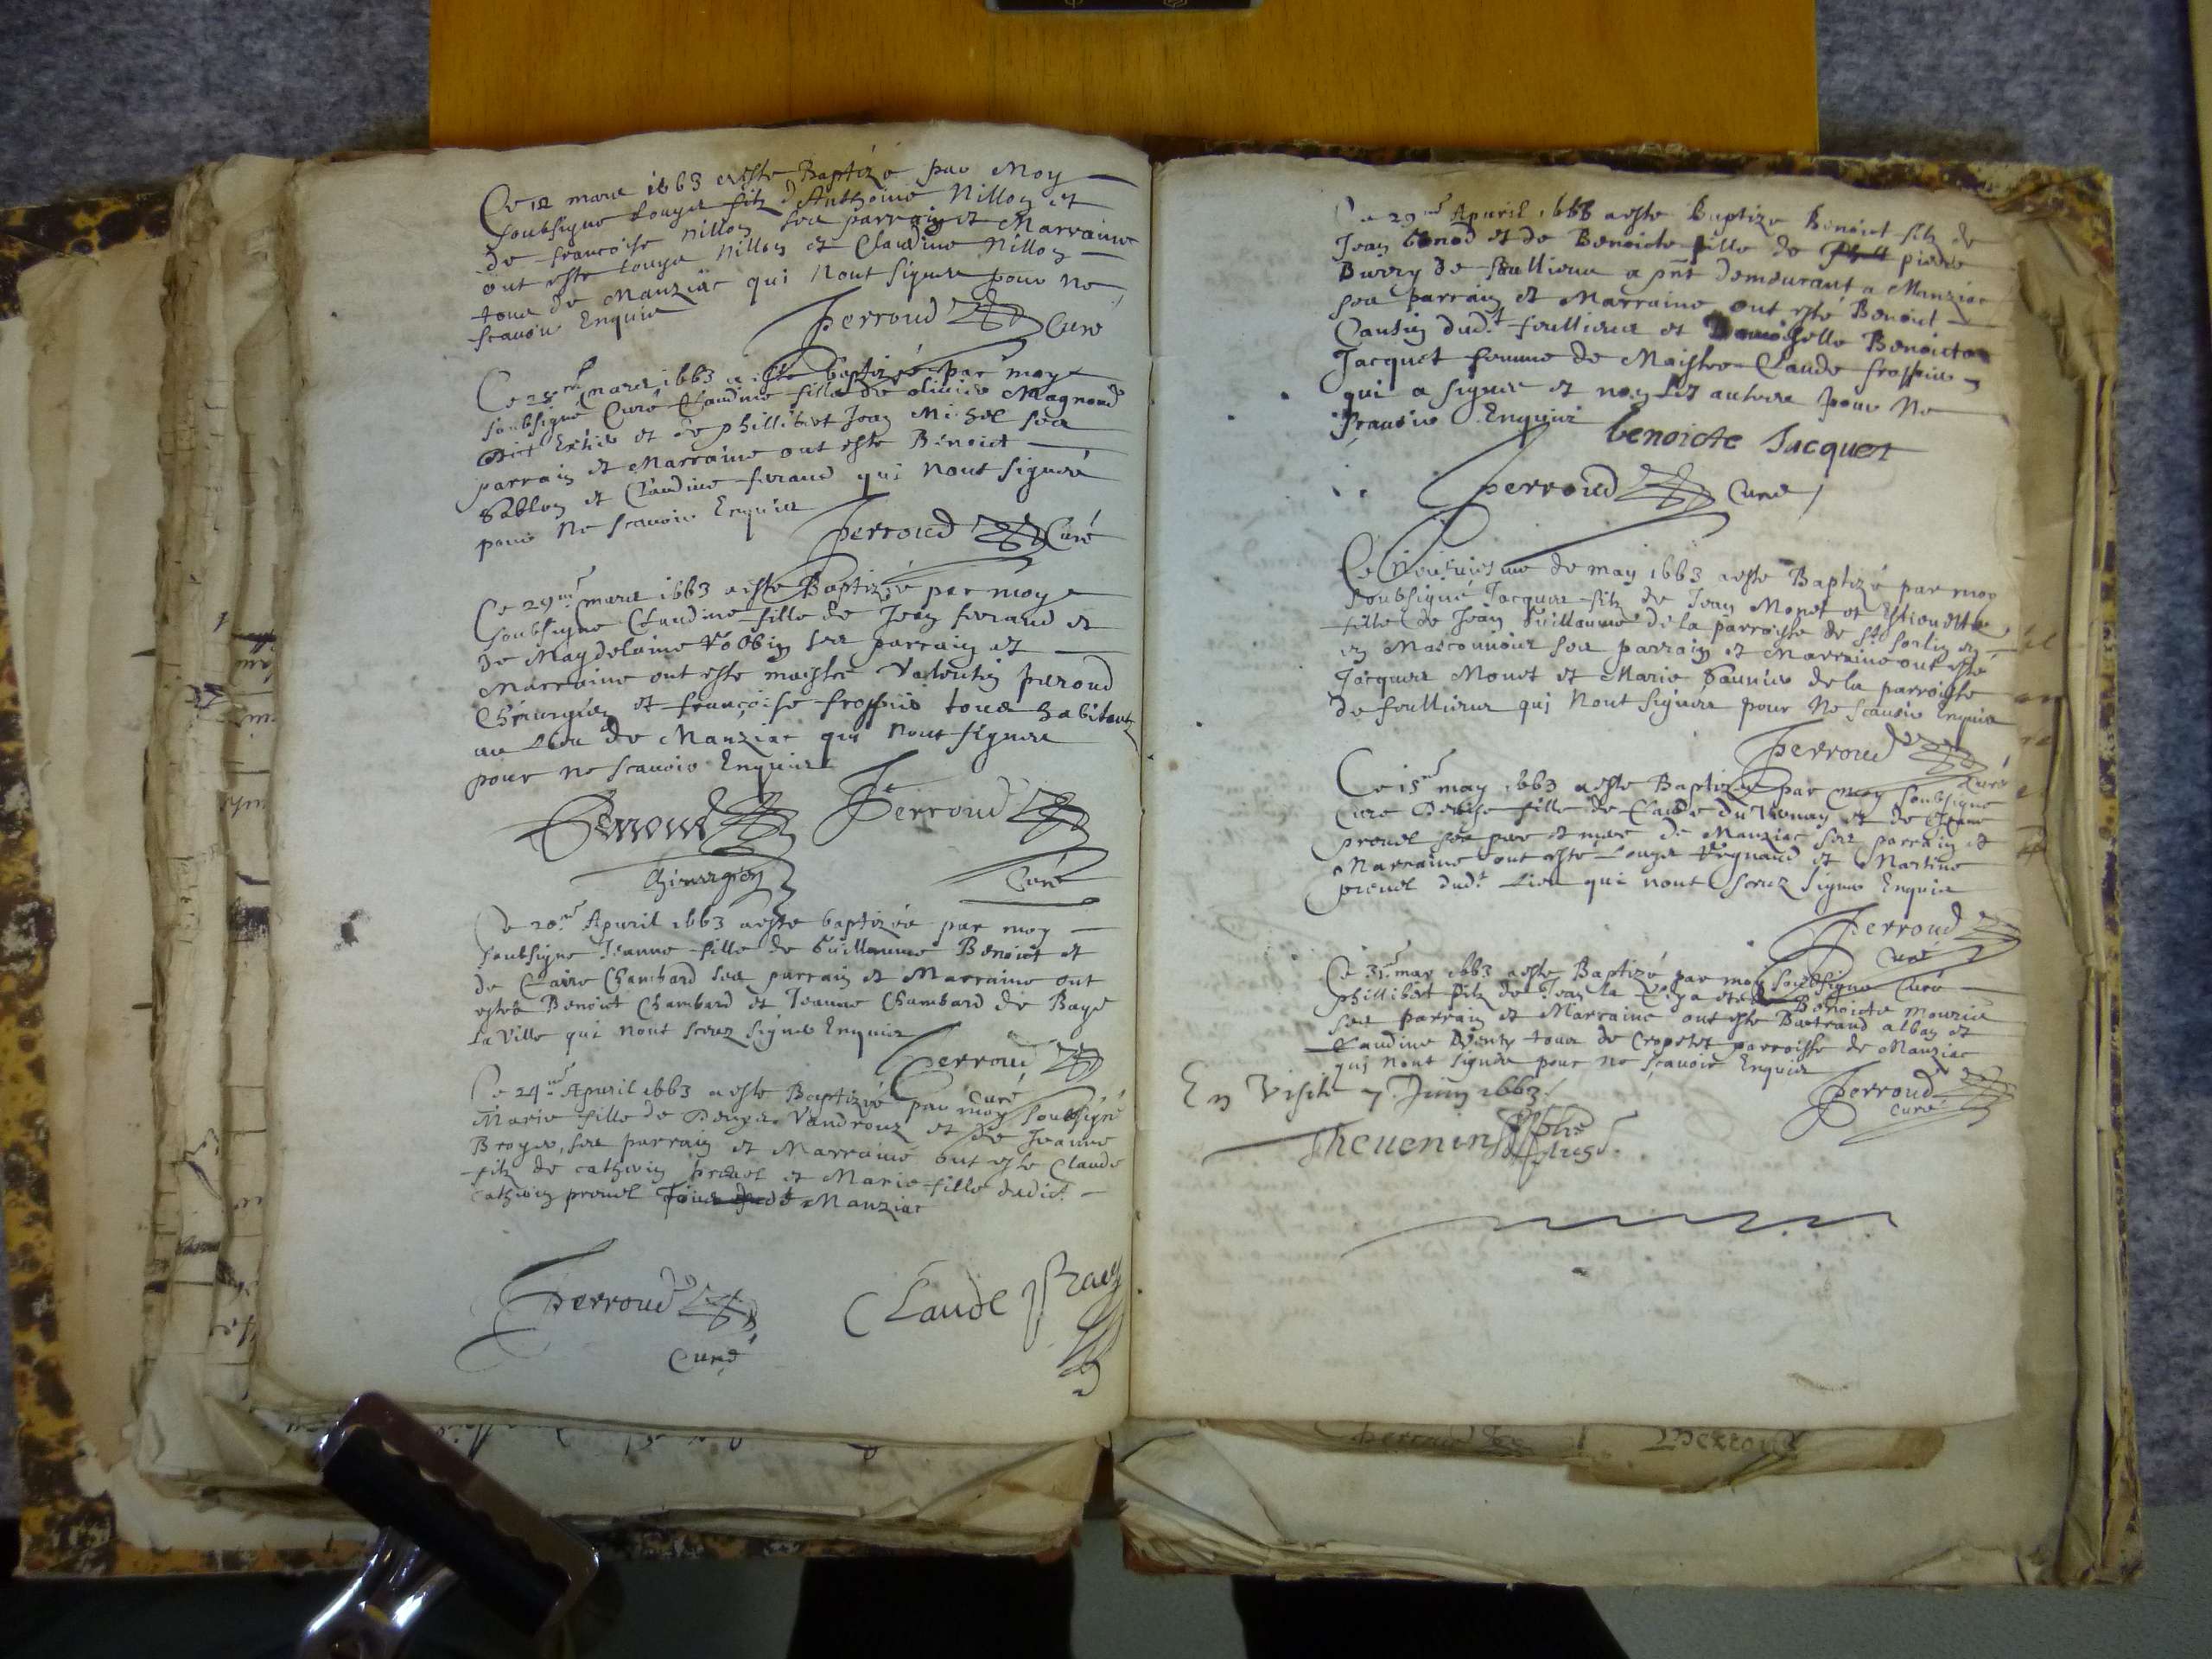 Ce 12 mars 1663 a este Baptize par Moy
soubsigne Louys filz d'Anthoine Nillon et
de francoise Nillon ses parrain et Marraine
ont este Louys Nillon et Claudine Nillon
tous de Manziac qui n'ont signés pour ne
scavoir Enquis
Perroud Curé
Ce 25me mars 1663 a este baptizé par moy
soubsigné Curé Claudine fille de
et de phillibert Jean Michel ses
parrain et Marraine ont este Benoict
Sablon et Claudine feraud qui n'ont signéz
pour Ne scavoir Enquis
Perroud Curé
Ce 29me mars 1663 a este Baptizée par moy
soubsigne Claudine fille de Jean feraud et
de Magdelaine Robbin ses parrain et
Marraine ont este maistre Valentin peroud
Chirurgien et françoise froppier tous habitants
au lieu de Manziac qui n'ont signéz
pour ne scavoir Enquis
Perroud
chirurgien Curé
Ce 20me Apvril 1663 a este baptizée par moy
soubsigne Jeanne fille de Guillaume Benoict et
de Claire Chambard ses parrain et Marraine ont
estés Benoict Chambard et Jeanne Chambard de Bagé
La Ville qui n'ont sceuz signer Enquis
Perroud
Curé
Ce 24me Apvril 1663 a este Baptizée par moy soubsigné
Marie fille de Denys Vandroux et de Jeanne
Broyer, ses parrain et Marraine ont este Claude
filz de catherin preuel et Marie fille dudict
catherin preuel Manziac
Perroud Claude
Curé
Ce 29me Apvril 1663 a este Baptize Benoict filz de
Jean benod et de Benoicte fille de pierre
de feullieux a pnt demeurant a Manziac
ses parrain et Marraine ont esté Benoict
Cautin dudt feullieux et Damoiselle Benoicte
Jacquet femme de Maistre Claude froppier
qui a signéz et non les autres pour Ne
scavoir Enquis
benoicte Jacquet
Perroud Curé
Ce de may 1663 a este Baptizé par moy
soubsigné Jacques filz de Jean Monet et Estiennette
fille de Jean Guillaume de la parroisse de St Sorlin en
en Masconnois ses parrain et Marraine ont esté
Jacques Monet et Marie Saunier de la parroisse
de feullieux qui n'ont signéz pour Ne scavoir Enquis
Perroud
Curé
Ce 15me may 1663 a este Baptizée par moy soubsigné
Curé Denise fille de Claude du Vernay et de
preuel ses pere et mere de Manziac ses parrain et
Marraine ont este Louys et Martine
preuel dudt Lieu qui n'ont sceuz signer Enquis
Perroud
Curé
Ce 31me may 1663 a este Baptizé par moy soubsigné Curé
phillibert filz de Jean la et de Benoicte mourier
ses parrain et Marraine ont este Bertrand alban et
Claudine tous de Cropetet parroisse de Manziac
qui n'ont signéz pour ne scavoir Enquis
Perroud
Curé
En Visite 7 Juin 1663.
Theuenin